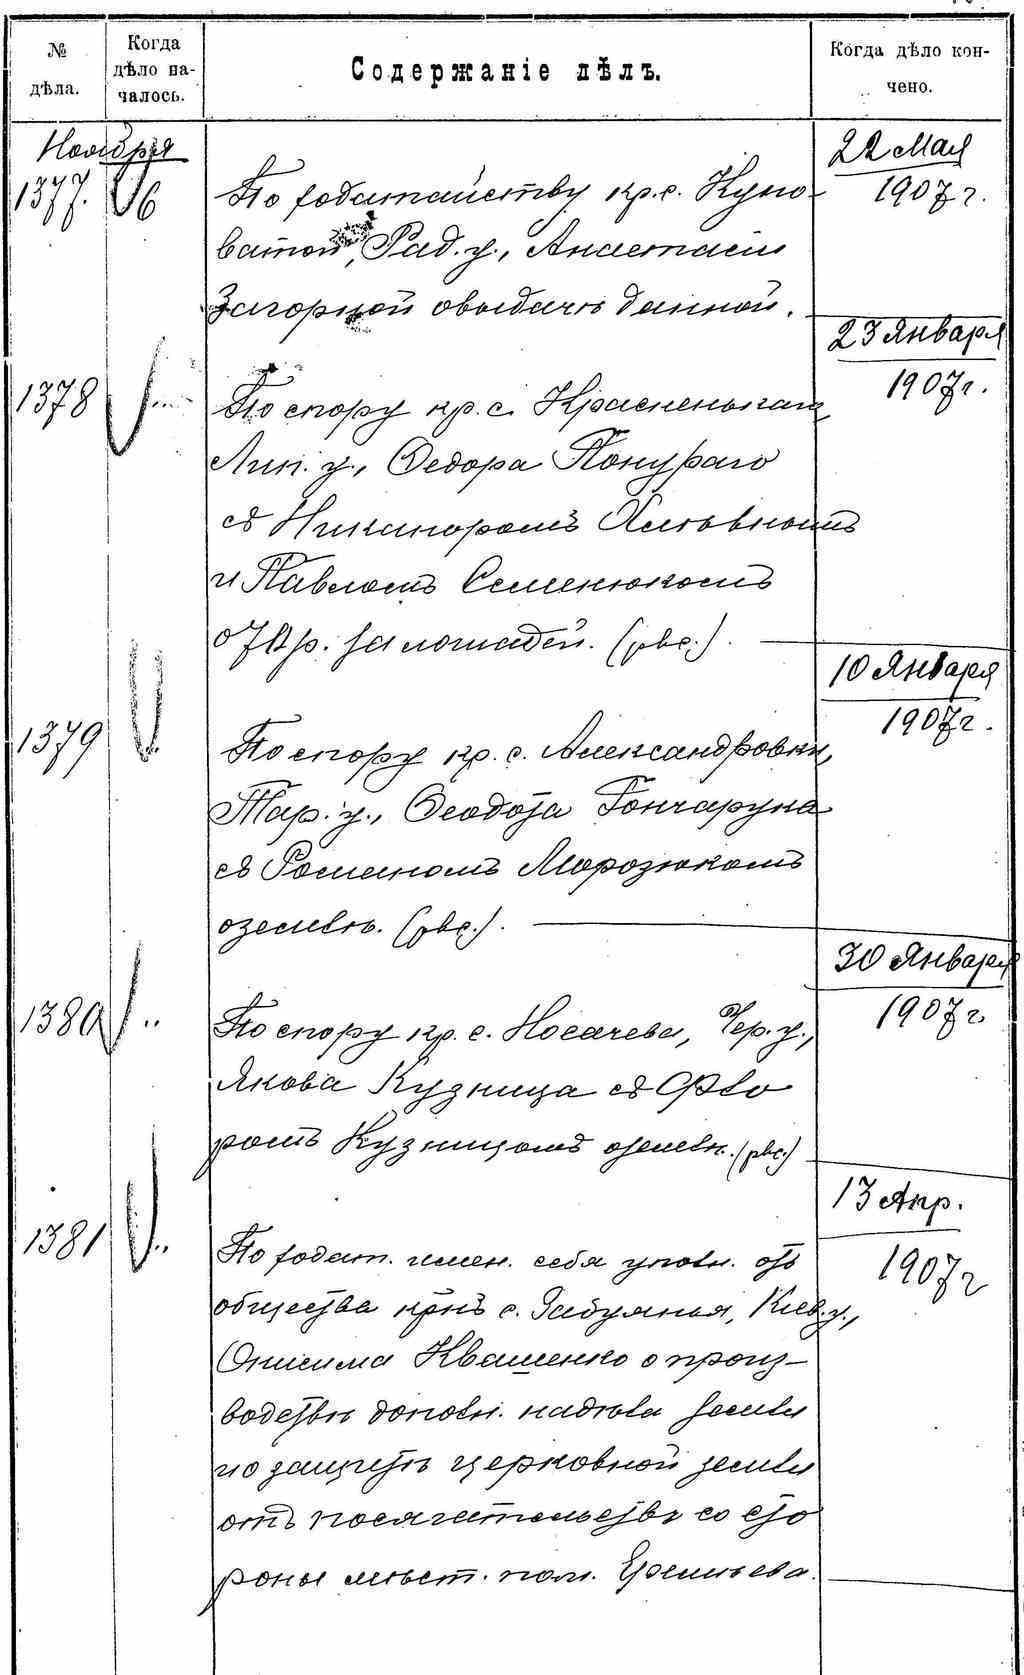 № дѣла.
Когда дѣло на-
чалось.
Содержаніе дѣлъ.
Когда дѣло кон-
чено.
Ноября
1377. 6
По ходатайству кр. с. Купо-
ватой, Рад. у., Анастасіи
Загорной о выдачѣ данной.
22 Мая
1907 г.
1378 "
По спору кр. с. Красненькаго,
Лип. у., Ѳедора Понураго
съ Никаноромъ
и Павломъ Семенюкомъ
о 70 р. за лошадей.
23 Января
1907 г.
1379 "
По спору кр. с. Александровки,
Тар. у., Ѳеодота Гончарука
съ Романомъ Морозюкомъ
о землѣ.
10 Января
1907 г.
1380 "
По спору кр. с. Носачева, Чер. у.,
Якова Кузница съ Фло
ромъ Кузницомъ о землѣ.
30 Января
1907 г.
1381 "
По ходат. имен. себя уполн. отъ
общества кр-нъ с. Забуянья, Кіев. у.,
Онисима Квашенко о произ-
водствѣ дополн. надѣла земли
и о защитѣ церковной земли
отъ посягательствъ со сто
роны мѣст. пом.
13 Апр.
1907 г.